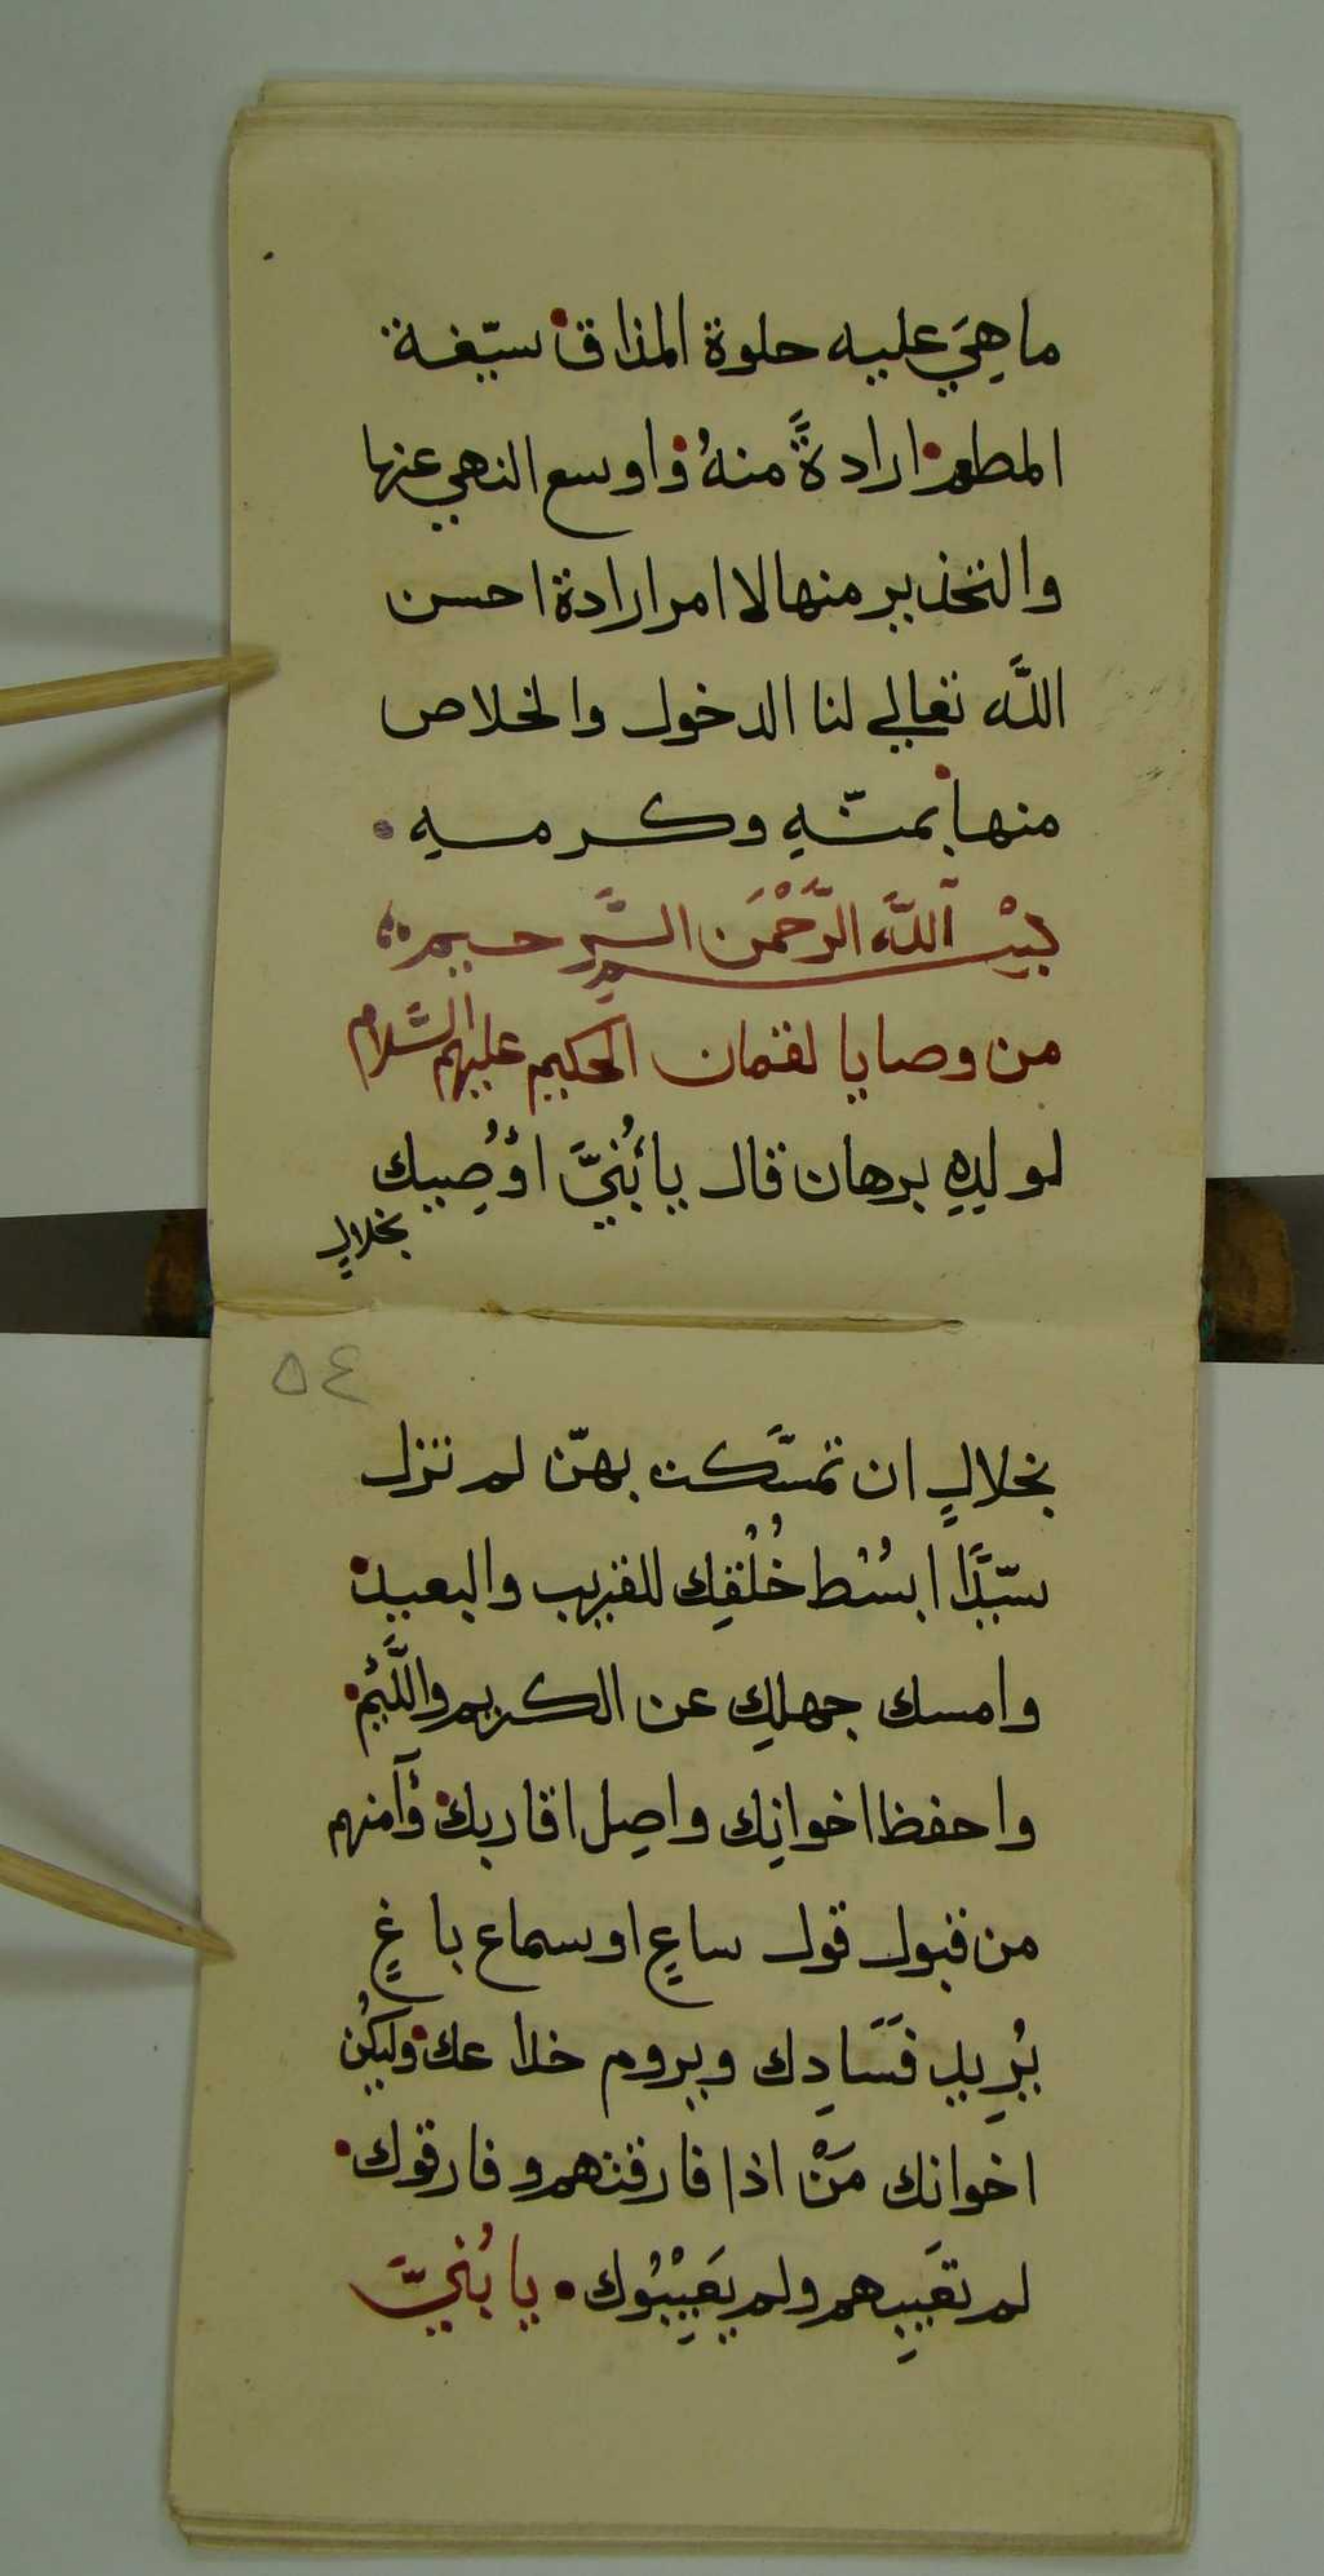 ما هِيَ عليه حلوة المذاق سيّغة
المطعم ارادةً منهُ واوسع النهي عنها
والتخذير منها لا امر ارادة احسن
اللَّه تعالي لنا الدخول والخلاص
منها بمنّهِ وكرمهِ
بِسْم اللَّه الرَّحْمَن الرَّحيم
من وصايا لقمان الحكيم عليهم السَّلام
لولدِهِ برهان قال يا بُنيَّ اوُصِيك
بخلالٍ
٥٤
بخلالٍ ان تمسَّكت بهنّ لم تزل
سيّدًا ابسُط خُلْقِك للقريب والبعيد
وامسك جهلِك عن الكريم واللَّئيم
واحفظ اخوانِك واصِل اقاربك وآمنهم
من قبول قول ساعٍ او سماع باغٍ
يُرِيد فَسَادِك ويروم خداعك وليكُن
اخوانك مَنْ اذا فارقتهم وفارقوك
لم تعَيبِهم ولم يَعِيْبُوك يا بُنيَّ